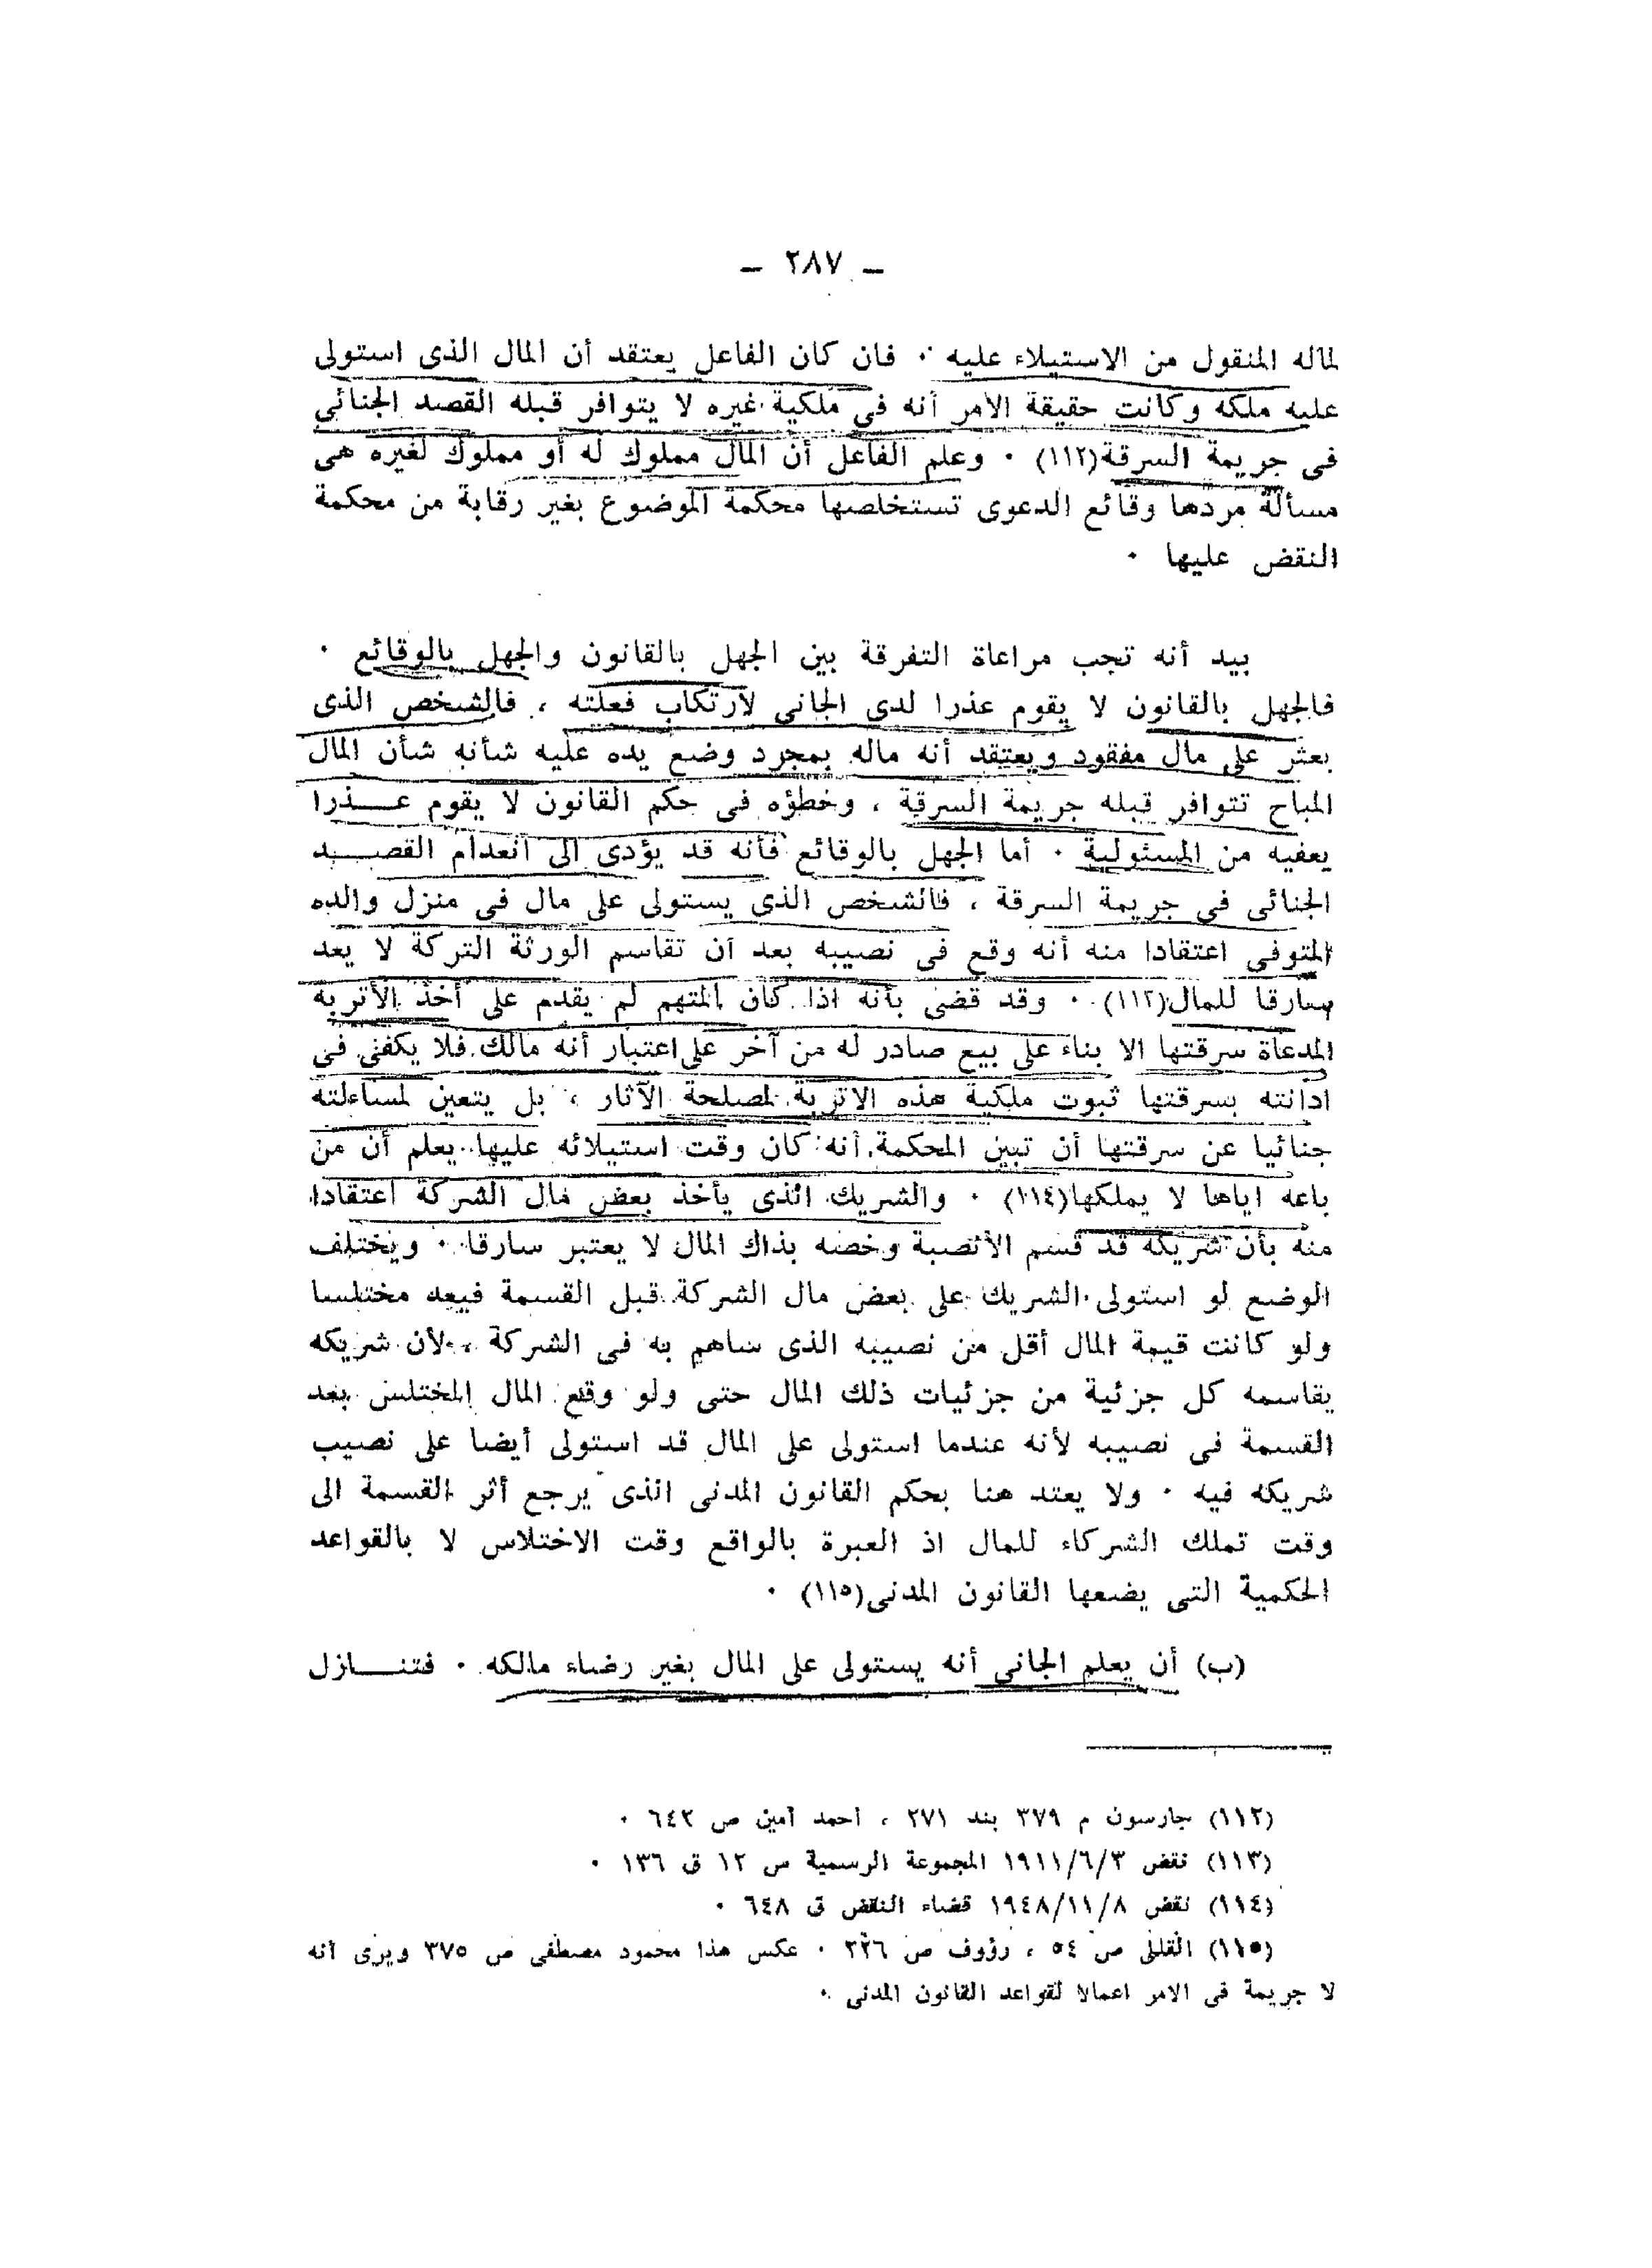 — ٢٨٧ —
لماله المنقول من الاستيلاء عليه ٠ فان كان الفاعل يعتقد أن المال الذى استولى
عليه ملكه وكانت حقيقة الامر أنه فى ملكية غيره لا يتوافر قبله القصد الجنائى
فى جريمة السرقة(١١٢) ٠ وعلم الفاعل أن المال مملوك له أو مملوك لغيره هى
مسألة مردها وقائع الدعوى تستخلصها محكمة الموضوع بغير رقابة من محكمة
النقض عليها ٠
بيد أنه تجب مراعاة التفرقة بين الجهل بالقانون والجهل بالوقائع ٠
فالجهل بالقانون لا يقوم عذرا لدى الجانى لارتكاب فعلته ، فالشخص الذى
يعثر على مال مفقود ويعتقد أنه ماله بمجرد وضع يده عليه شأنه شأن المال
المباح تتوافر قبله جريمة السرقة ، وخطؤه فى حكم القانون لا يقوم عـــذرا
يعفيه من المسئولية ٠ أما الجهل بالوقائع فأنه قد يؤدى الى انعدام القصـــد
الجنائى فى جريمة السرقة ، فالشخص الذى يستولى على مال فى منزل والده
المتوفى اعتقادا منه أنه وقع فى نصيبه بعد أن تقاسم الورثة التركة لا يعد
سارقا للمال(١١٣) ٠ وقد قضى بأنه اذا كان المتهم لم يقدم على أخذ الأتربة
المدعاة سرقتها الا بناء على بيع صادر له من آخر على اعتبار أنه مالك فلا يكفى فى
ادانته بسرقتها ثبوت ملكية هذه الاتربة لمصلحة الآثار ، بل يتعين لمساءلته
جنائيا عن سرقتها أن تبين المحكمة أنه كان وقت استيلائه عليها يعلم أن من
باعه اياها لا يملكها(١١٤) ٠ والشريك الذى يأخذ بعض مال الشركة اعتقادا
منه بأن شريكه قد قسم الأنصبة وخصه بذاك المال لا يعتبر سارقا ٠ ويختلف
الوضع لو استولى الشريك على بعض مال الشركة قبل القسمة فيعد مختلسا
ولو كانت قيمة المال أقل من نصيبه الذى ساهم به فى الشركة ، لأن شريكه
يقاسمه كل جزئية من جزئيات ذلك المال حتى ولو وقع المال المختلس بعد
القسمة فى نصيبه لأنه عندما استولى على المال قد استولى أيضا على نصيب
شريكه فيه ٠ ولا يعتد هنا بحكم القانون المدنى الذى يرجع أثر القسمة الى
وقت تملك الشركاء للمال اذ العبرة بالواقع وقت الاختلاس لا بالقواعد
الحكمية التى يضعها القانون المدنى(١١٥) ٠
(ب) أن يعلم الجانى أنه يستولى على المال بغير رضاء مالكه ٠ فتنــــازل
(١١٢) جارسون م ٣٧٩ بند ٢٧١ ، أحمد أمين ص ٦٤٢ ٠
(١١٣) نقض ١٩١١/٦/٣ المجموعة الرسمية س ١٢ ق ١٣٦ ٠
(١١٤) نقض ١٩٤٨/١١/٨ قضاء النقض ق ٦٤٨ ٠
(١١٥) القللى ص ٥٤ ، رؤوف ص ٣٢٦ ٠ عكس هذا محمود مصطفى ص ٣٧٥ ويرى أنه
لا جريمة فى الامر اعمالا لقواعد القانون المدنى ٠